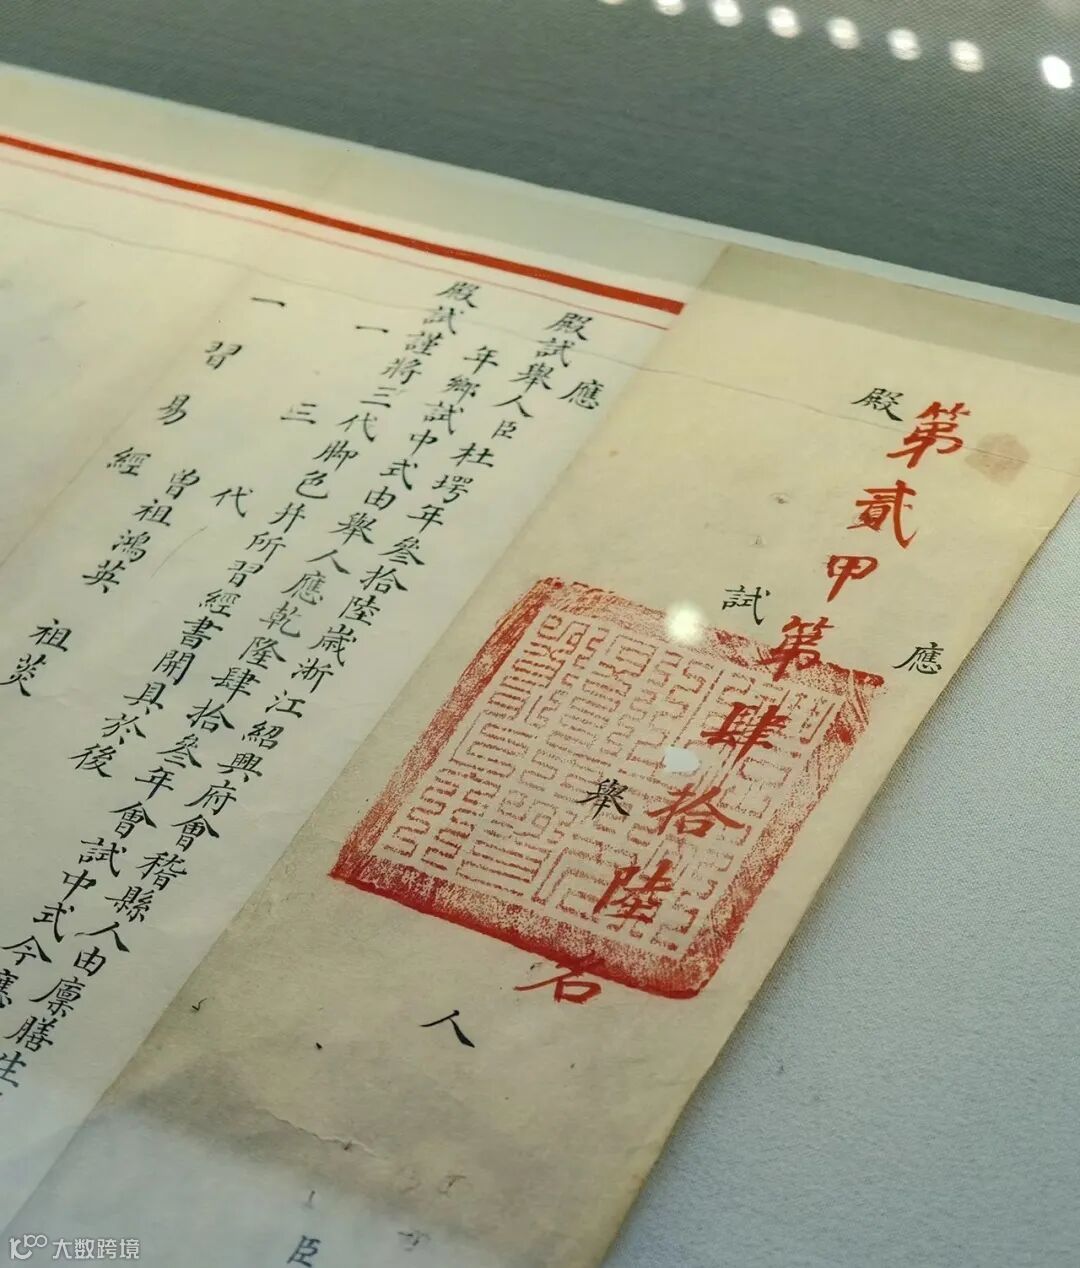 第貳甲第肆拾陸名
應
殿試舉人
臣
應
殿試舉人臣杜堮年叁拾陸歲浙江紹興府會稽縣人由廩膳生
年鄉試中式由舉人應乾隆肆拾叁年會試中式今應
殿試謹將三代脚色并所習經書開具於後
一三代
曾祖鴻英 祖
一習易經
大数跨境